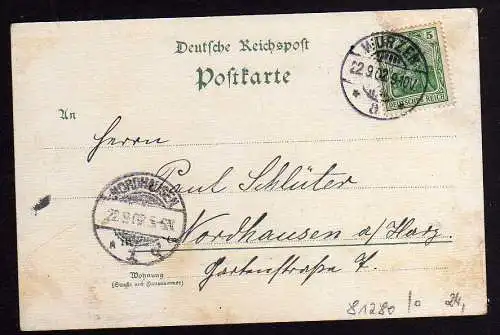 Deutsche Reichspost
Postkarte
WURZEN
22.9.02.9-10V
a
5
DEUTSCHES REICH
An
Herrn
Paul Schlüter
NORDHAUSEN
22.9.02.
Nordhausen a/Harz
Gartenstraße 7.
Wohnung
(Straße und Hausnummer)
81280
24,